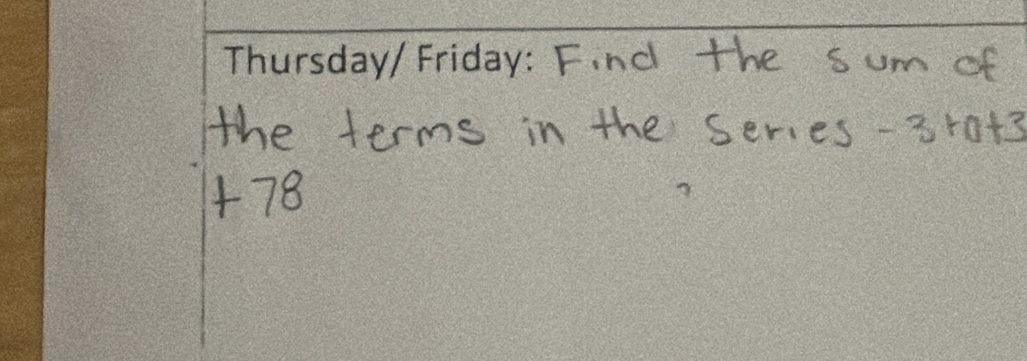 Thursday/ Friday: Find the sum of
the terms in the series -3+0+3
+78